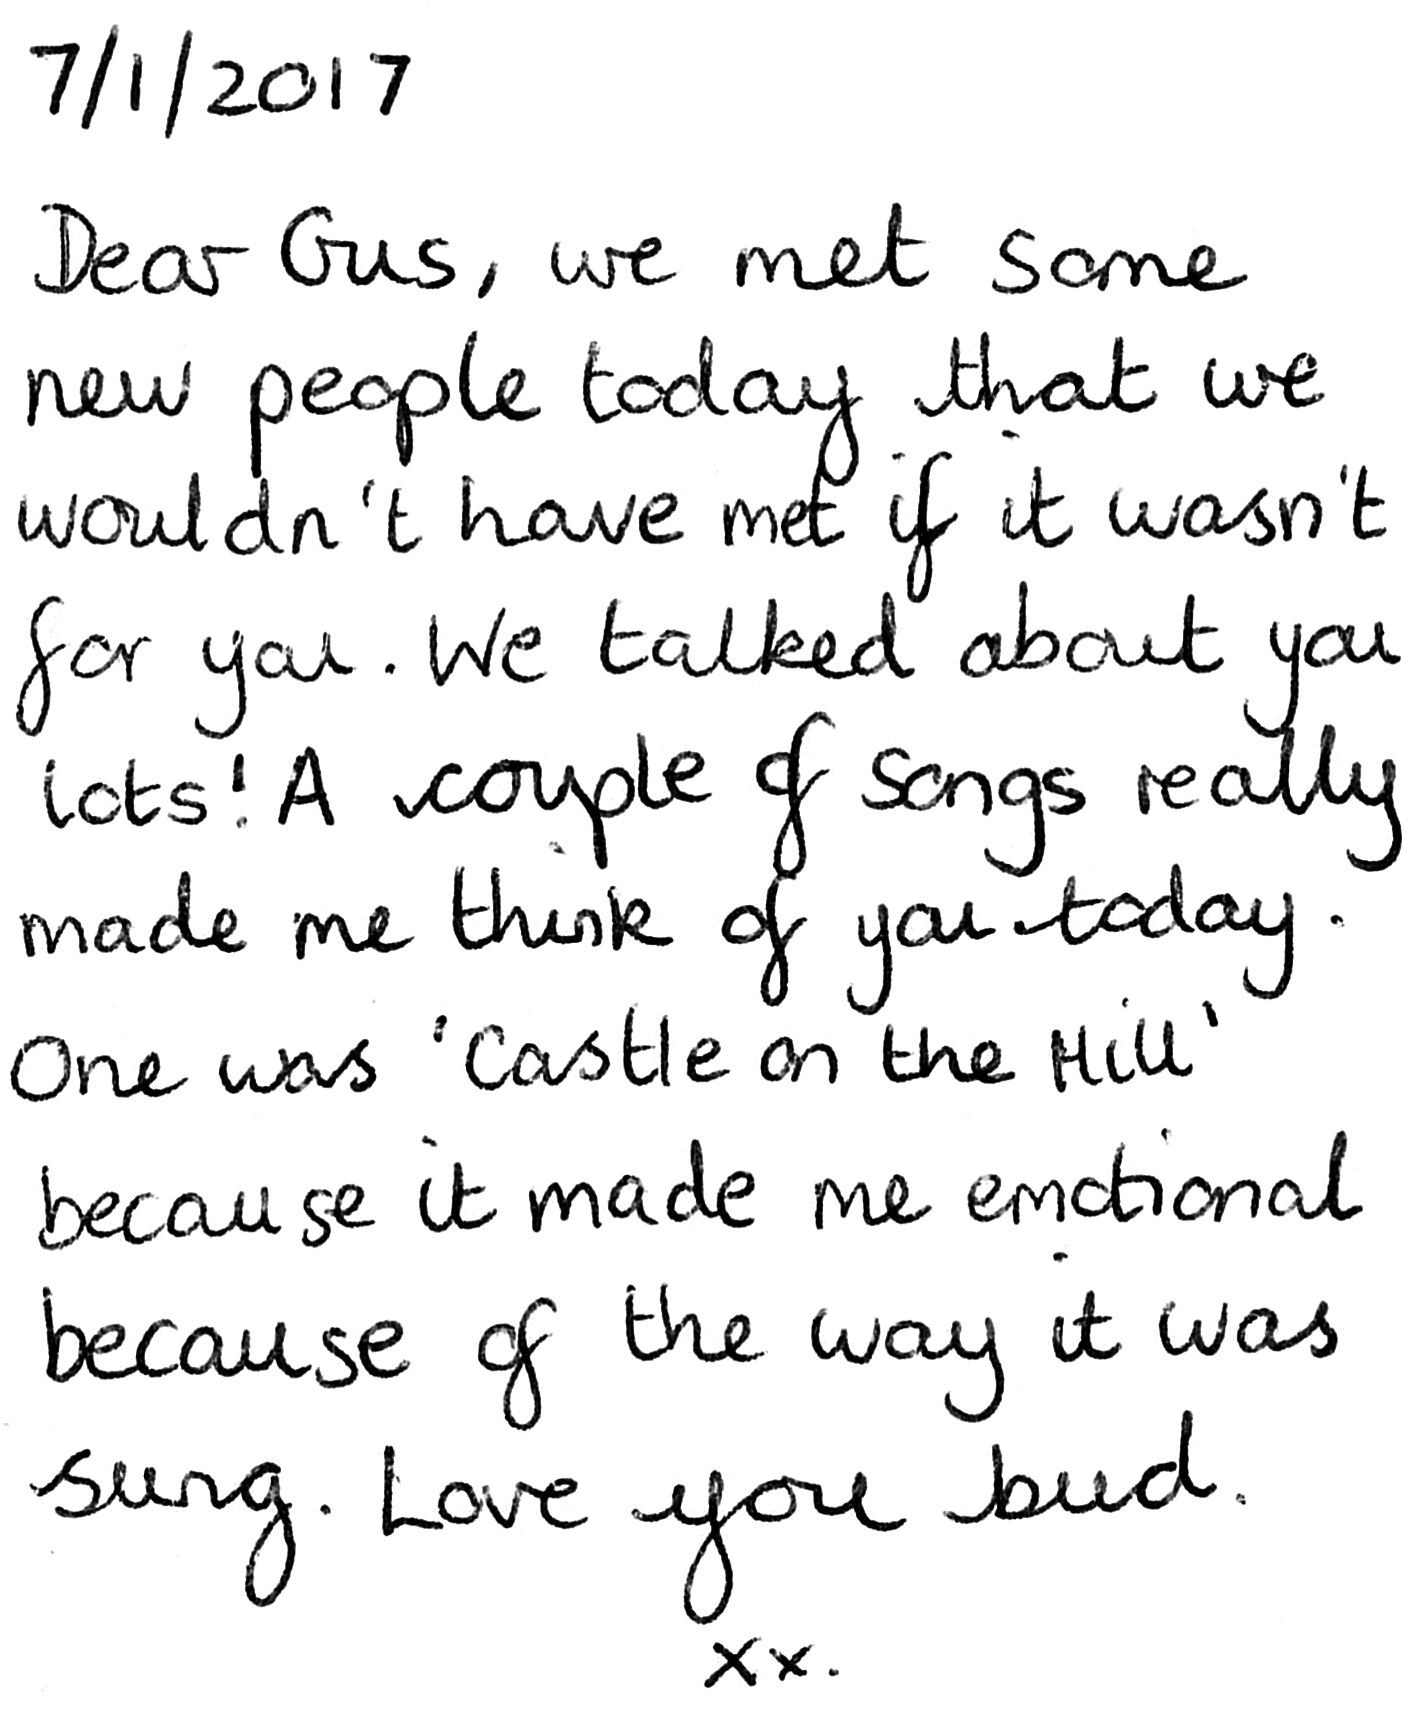 7/1/2017
Dear Gus, we met some
new people today that we
wouldn't have met if it wasn't
for you. We talked about you
lots! A couple of songs really
made me think of you today.
One was 'Castle on the Hill'
because it made me emotional
because of the way it was
sung. Love you bud.
xx.